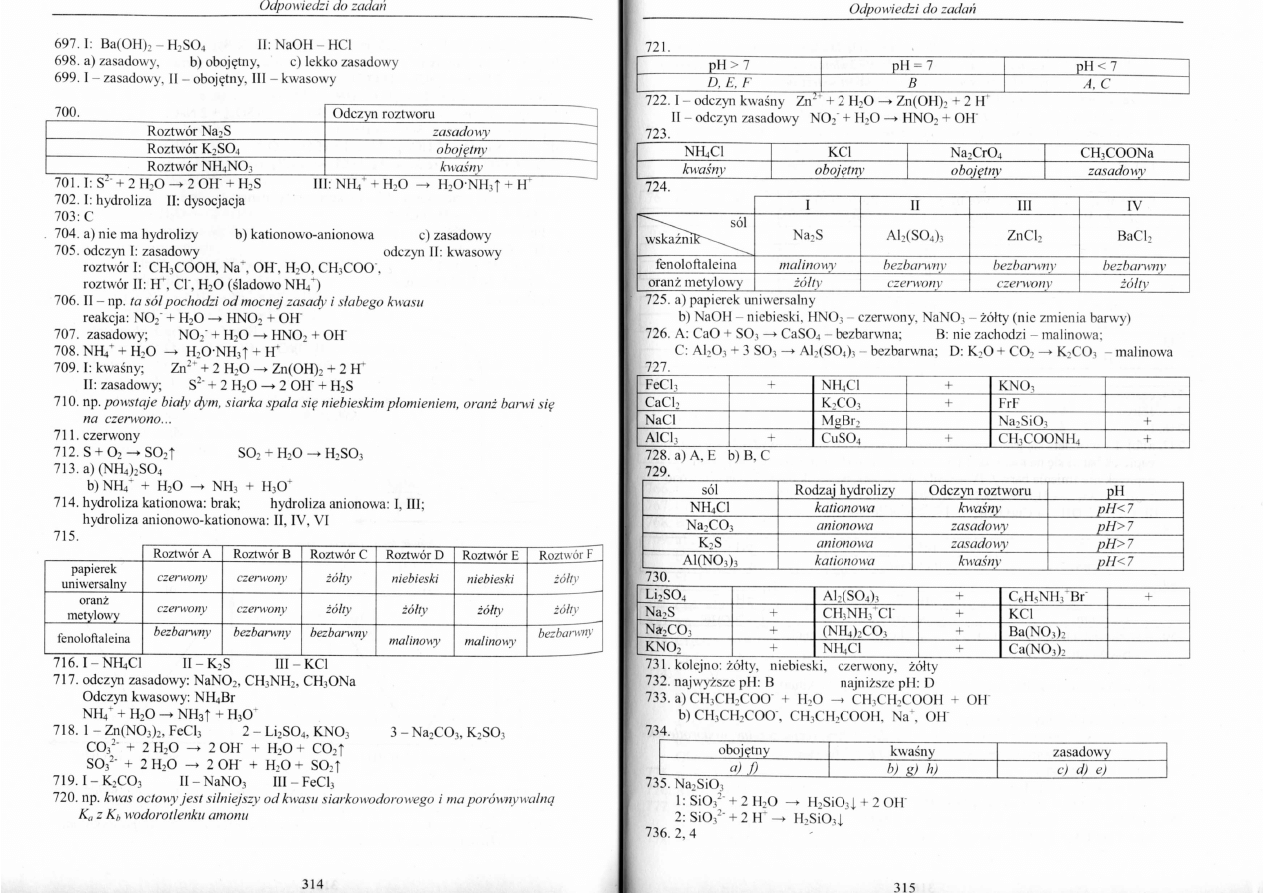 Odpowiedzi do zadań
697. I: Ba(OH)₂ – H₂SO₄ II: NaOH – HCl
698. a) zasadowy, b) obojętny, c) lekko zasadowy
699. I – zasadowy, II – obojętny, III – kwasowy
700. Odczyn roztworu
Roztwór Na₂S zasadowy
Roztwór K₂SO₄ obojętny
Roztwór NH₄NO₃ kwaśny
701. I: S²⁻ + 2 H₂O → 2 OH⁻ + H₂S III: NH₄⁺ + H₂O → H₂O·NH₃↑ + H⁺
702. I: hydroliza II: dysocjacja
703: C
704. a) nie ma hydrolizy b) kationowo-anionowa c) zasadowy
705. odczyn I: zasadowy odczyn II: kwasowy
roztwór I: CH₃COOH, Na⁺, OH⁻, H₂O, CH₃COO⁻,
roztwór II: H⁺, Cl⁻, H₂O (śladowo NH₄⁺)
706. II – np. ta sól pochodzi od mocnej zasady i słabego kwasu
reakcja: NO₂⁻ + H₂O → HNO₂ + OH⁻
707. zasadowy; NO₂⁻ + H₂O → HNO₂ + OH⁻
708. NH₄⁺ + H₂O → H₂O·NH₃↑ + H⁺
709. I: kwaśny; Zn²⁺ + 2 H₂O → Zn(OH)₂ + 2 H⁺
II: zasadowy; S²⁻ + 2 H₂O → 2 OH⁻ + H₂S
710. np. powstaje biały dym, siarka spala się niebieskim płomieniem, oranż barwi się
na czerwono...
711. czerwony
712. S + O₂ → SO₂↑ SO₂ + H₂O → H₂SO₃
713. a) (NH₄)₂SO₄
b) NH₄⁺ + H₂O → NH₃ + H₃O⁺
714. hydroliza kationowa: brak; hydroliza anionowa: I, III;
hydroliza anionowo-kationowa: II, IV, VI
715.
Roztwór A Roztwór B Roztwór C Roztwór D Roztwór E Roztwór F
papierek
uniwersalny czerwony czerwony żółty niebieski niebieski żółty
oranż
metylowy czerwony czerwony żółty żółty żółty żółty
fenoloftaleina bezbarwny bezbarwny bezbarwny malinowy malinowy bezbarwny
716. I – NH₄Cl II – K₂S III – KCl
717. odczyn zasadowy: NaNO₂, CH₃NH₂, CH₃ONa
Odczyn kwasowy: NH₄Br
NH₄⁺ + H₂O → NH₃↑ + H₃O⁺
718. 1 – Zn(NO₃)₂, FeCl₃ 2 – Li₂SO₄, KNO₃ 3 – Na₂CO₃, K₂SO₃
CO₃²⁻ + 2 H₂O → 2 OH⁻ + H₂O + CO₂↑
SO₃²⁻ + 2 H₂O → 2 OH⁻ + H₂O + SO₂↑
719. I – K₂CO₃ II – NaNO₃ III – FeCl₃
720. np. kwas octowy jest silniejszy od kwasu siarkowodorowego i ma porównywalną
Kₐ z K_b wodorotlenku amonu
314
Odpowiedzi do zadań
721.
pH > 7 pH = 7 pH < 7
D, E, F B A, C
722. I – odczyn kwaśny Zn²⁺ + 2 H₂O → Zn(OH)₂ + 2 H⁺
II – odczyn zasadowy NO₂⁻ + H₂O → HNO₂ + OH⁻
723.
NH₄Cl KCl Na₂CrO₄ CH₃COONa
kwaśny obojętny obojętny zasadowy
724.
I II III IV
sól
wskaźnik Na₂S Al₂(SO₄)₃ ZnCl₂ BaCl₂
fenoloftaleina malinowy bezbarwny bezbarwny bezbarwny
oranż metylowy żółty czerwony czerwony żółty
725. a) papierek uniwersalny
b) NaOH – niebieski, HNO₃ – czerwony, NaNO₃ – żółty (nie zmienia barwy)
726. A: CaO + SO₃ → CaSO₄ – bezbarwna; B: nie zachodzi – malinowa;
C: Al₂O₃ + 3 SO₃ → Al₂(SO₄)₃ – bezbarwna; D: K₂O + CO₂ → K₂CO₃ – malinowa
727.
FeCl₃ + NH₄Cl + KNO₃
CaCl₂ K₂CO₃ + FrF
NaCl MgBr₂ Na₂SiO₃ +
AlCl₃ + CuSO₄ + CH₃COONH₄ +
728. a) A, E b) B, C
729.
sól Rodzaj hydrolizy Odczyn roztworu pH
NH₄Cl kationowa kwaśny pH<7
Na₂CO₃ anionowa zasadowy pH>7
K₂S anionowa zasadowy pH>7
Al(NO₃)₃ kationowa kwaśny pH<7
730.
Li₂SO₄ Al₂(SO₄)₃ + C₆H₅NH₃⁺Br⁻ +
Na₂S + CH₃NH₃⁺Cl⁻ + KCl
Na₂CO₃ + (NH₄)₂CO₃ + Ba(NO₃)₂
KNO₂ + NH₄Cl + Ca(NO₃)₂
731. kolejno: żółty, niebieski, czerwony, żółty
732. najwyższe pH: B najniższe pH: D
733. a) CH₃CH₂COO⁻ + H₂O → CH₃CH₂COOH + OH⁻
b) CH₃CH₂COO⁻, CH₃CH₂COOH, Na⁺, OH⁻
734.
obojętny kwaśny zasadowy
a) f) b) g) h) c) d) e)
735. Na₂SiO₃
1: SiO₃²⁻ + 2 H₂O → H₂SiO₃↓ + 2 OH⁻
2: SiO₃²⁻ + 2 H⁺ → H₂SiO₃↓
736. 2, 4
315